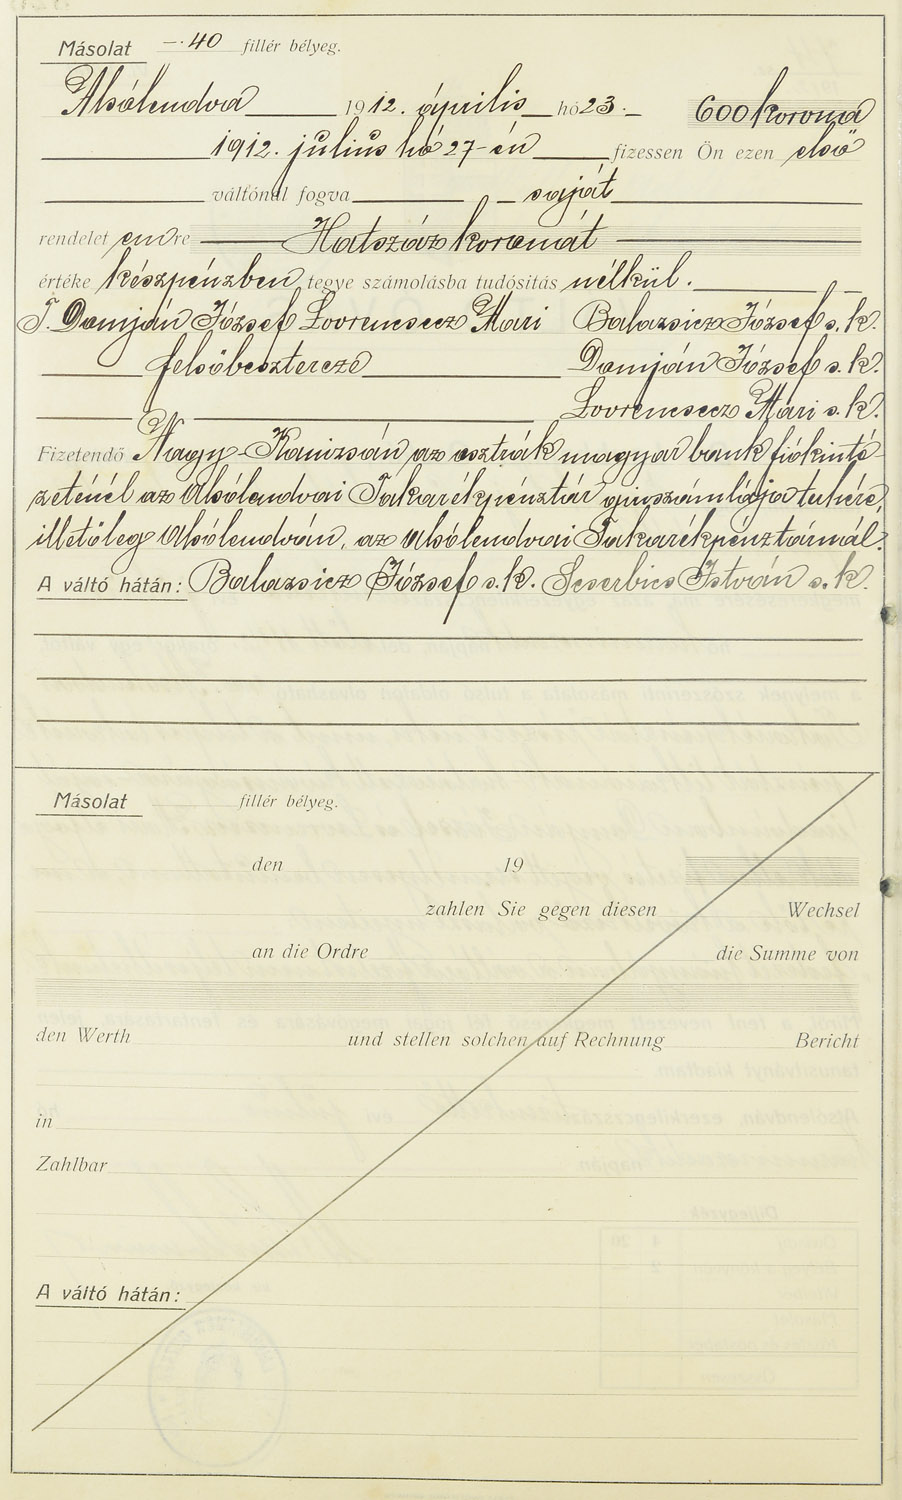 Másolat —·40 fillér bélyeg.
Alsólendva 1912. április hó 23. 600 korona
1912. július hó 27-én fizessen Ön ezen első
váltónál fogva saját
rendeletemre Hatszáz koronát
értéke készpénzben tegye számolásba tudósítás nélkül.
T. Domján József Lovrencsecz Mari Balazsicz József s. k.
felsőbeszterczé Domján József s. k.
Lovrencsecz Mari s. k.
Fizetendő Nagy-Kanizsán, az osztrák magyar bank fiókinté-
zeténél az Alsólendvai Takarékpénztár girószámlája terhére,
illetőleg Alsólendván, az Alsólendvai Takarékpénztárnál.
A váltó hátán: Balazsicz József s. k. István s. k.
Másolat fillér bélyeg.
den 19
zahlen Sie gegen diesen Wechsel
an die Ordre die Summe von
den Werth und stellen solchen auf Rechnung Bericht
in
Zahlbar
A váltó hátán: